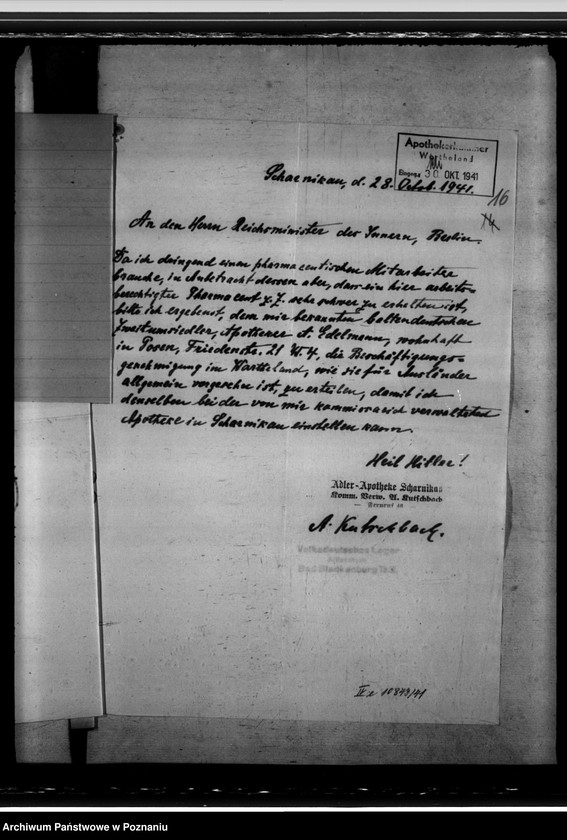 Apothekerkammer
Wartheland
Eingang 30. OKT. 1941
Scharnikau, d. 28. Octob. 1941.
16
An den Herrn Reichsminister des Innern, Berlin.
Da ich dringend einen pharmaceutischen Mitarbeiter
brauche, in Anbetracht dessen aber, dass ein hier arbeits-
berechtigter Pharmacent z. Z. sehr schwer zu erhalten ist,
bitte ich ergebenst, dem mir bekannten baltendeutschen
Apotheker A. Edelmann, wohnhaft
in Posen, Friedenstr. 21 W. 4, die Beschäftigungs-
genehmigung im Wartheland, wie sie für Ausländer
allgemein vorgesehn ist, zu erteilen, damit ich
denselben bei der von mir kommissarisch verwalteten
Apotheke in Scharnikau einstellen kann.
Heil Hitler!
Adler-Apotheke Scharnikau
Komm. Verw. A. Kutschbach
— Fernruf 20
A. Kutschbach.
Volksdeutsches Lager
Bad Blankenburg
10849/41
Archiwum Państwowe w Poznaniu